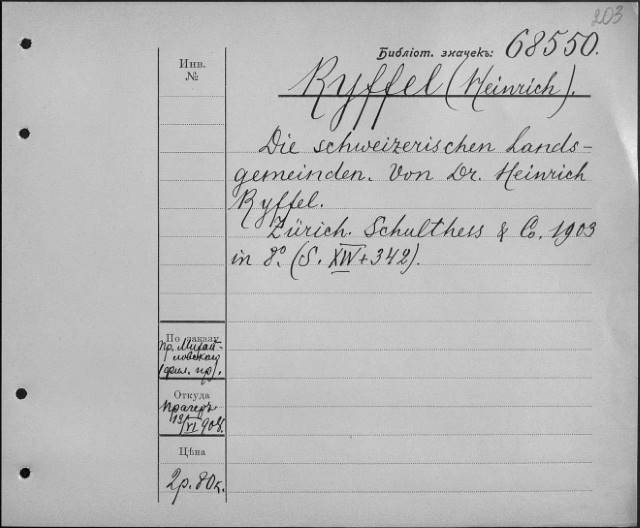 203
Библіот. значекъ: 68550.
Инв.
№
Ryffel (Heinrich).
Die schweizerischen Lands-
gemeinden. Von Dr. Heinrich
Ryffel.
Zürich. Schulthess & Co. 1903
in 8º. (S. XIV + 342).
По заказу
пр. Михай-
ловскаго
Откуда
Прагеръ
13/XI 908.
Цѣна
2р. 80к.